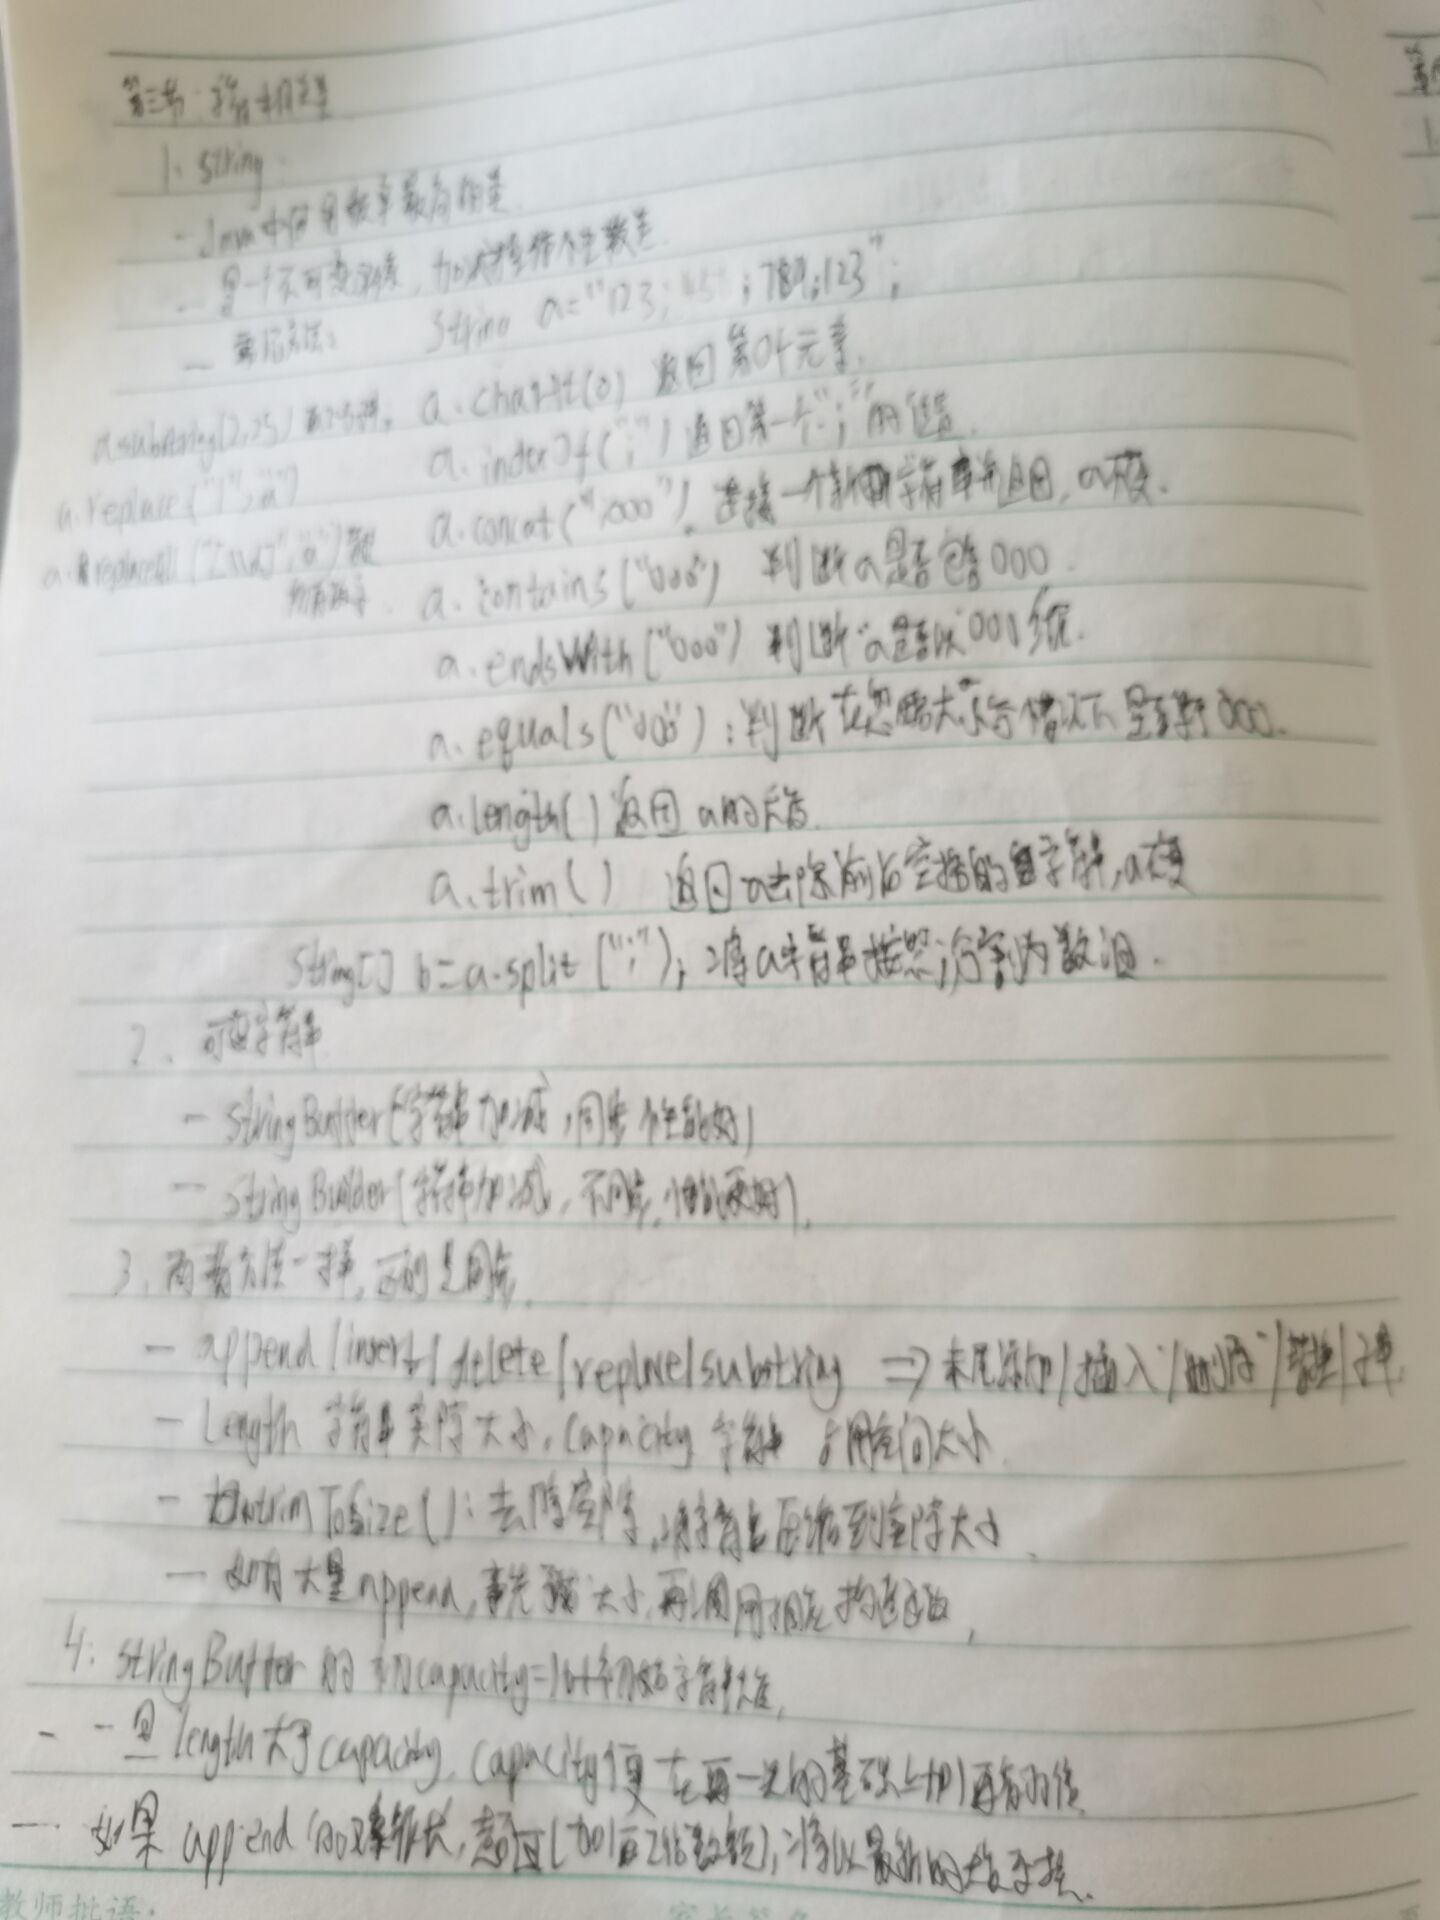 第三节：字符串相关类
1. String：
- Java中使用频率最高的类
- 是一个不可变对象，加减操作性能差
- 常见方法： String a="123;456;789;123";
a.charAt(0) 返回第0个元素.
a.substring(2,5)
a.indexOf(";") 返回第一个";"的位置.
a.replace("1","a")
a.concat(";000"). 连接一个新的字符串并返回, a不变.
a.replaceAll("[\\d]","a") 替换
所有数字.
a.contains("000") 判断a是否包含000.
a.endsWith("000") 判断a是否以000结尾.
a.equals("000"): 判断在忽略大小写情况下是否等于000.
a.length() 返回a的长度.
a.trim() 返回a去除前后空格的字符串, a不变
String[] b=a.split(";"); 将a字符串按照;分割为数组.
2、可变字符串
- StringBuffer(字符串加减,同步,性能好)
- StringBuilder(字符串加减, 不同步, 性能更好).
3. 两者方法一样, 区别是同步
- append/insert/delete/replace/substring => 末尾添加/插入/删除/替换/子串
- Length 字符串实际大小, capacity 字符串占用空间大小
- trimToSize(): 去除空隙, 将字符串压缩到实际大小
- 如有大量append, 事先预估大小, 再调用相应构造函数
4. StringBuffer 的初capacity=16+初始字符串长度,
- 一旦length大于capacity, capacity便在前一次的基础上加1再翻倍
- 如果append的对象很长, 超过(加1再2倍数额), 将以最新的长度替换.
教师批语：